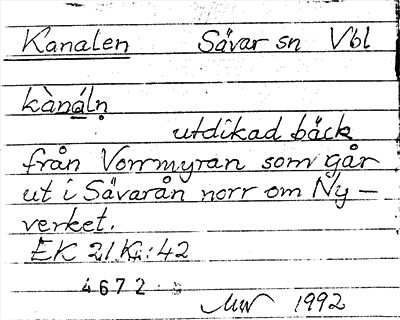 Kanalen Sävar sn Vbl
kànáln̥
utdikad bäck
från Vorrmyran som går
ut i Sävarån norr om Ny-
verket.
EK 21 K: 42
4672
MW 1992